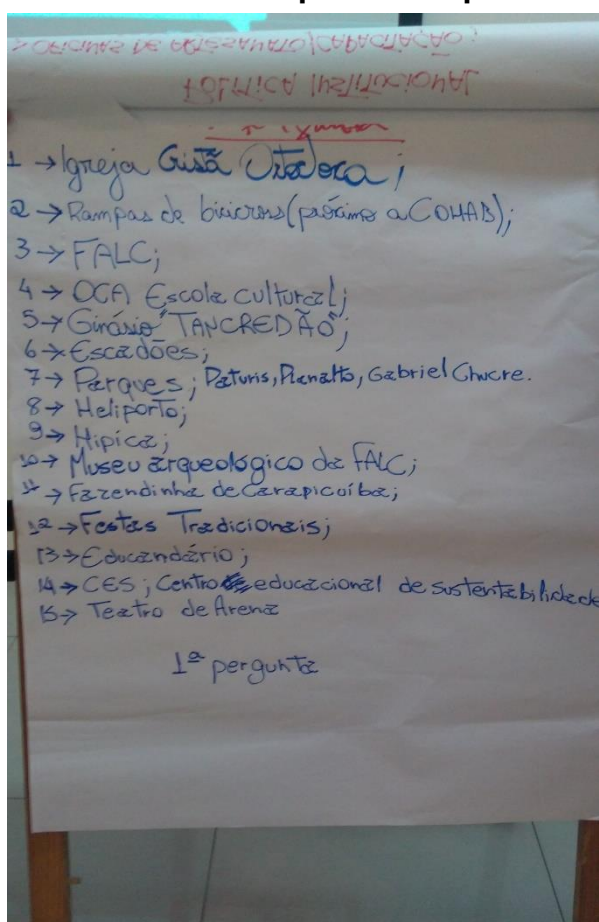 > OFICINAS DE ARTESANATO/CAPACITAÇÃO;
POLÍTICA INSTITUCIONAL
1 → Igreja Cristã Ortodoxa;
2 → Rampas de bicicross (próximo a COHAB);
3 → FALC;
4 → OCA Escola cultural;
5 → Ginásio "TANCREDÃO";
6 → Escadões;
7 → Parques; Paturis, Planalto, Gabriel Chucre.
8 → Heliporto;
9 → Hipica;
10 → Museu arqueológico da FALC;
11 → Fazendinha de Carapicuíba;
12 → Festas Tradicionais;
13 → Educandário;
14 → CES; Centro educacional de sustentabilidade
15 → Teatro de Arena
1ª pergunta